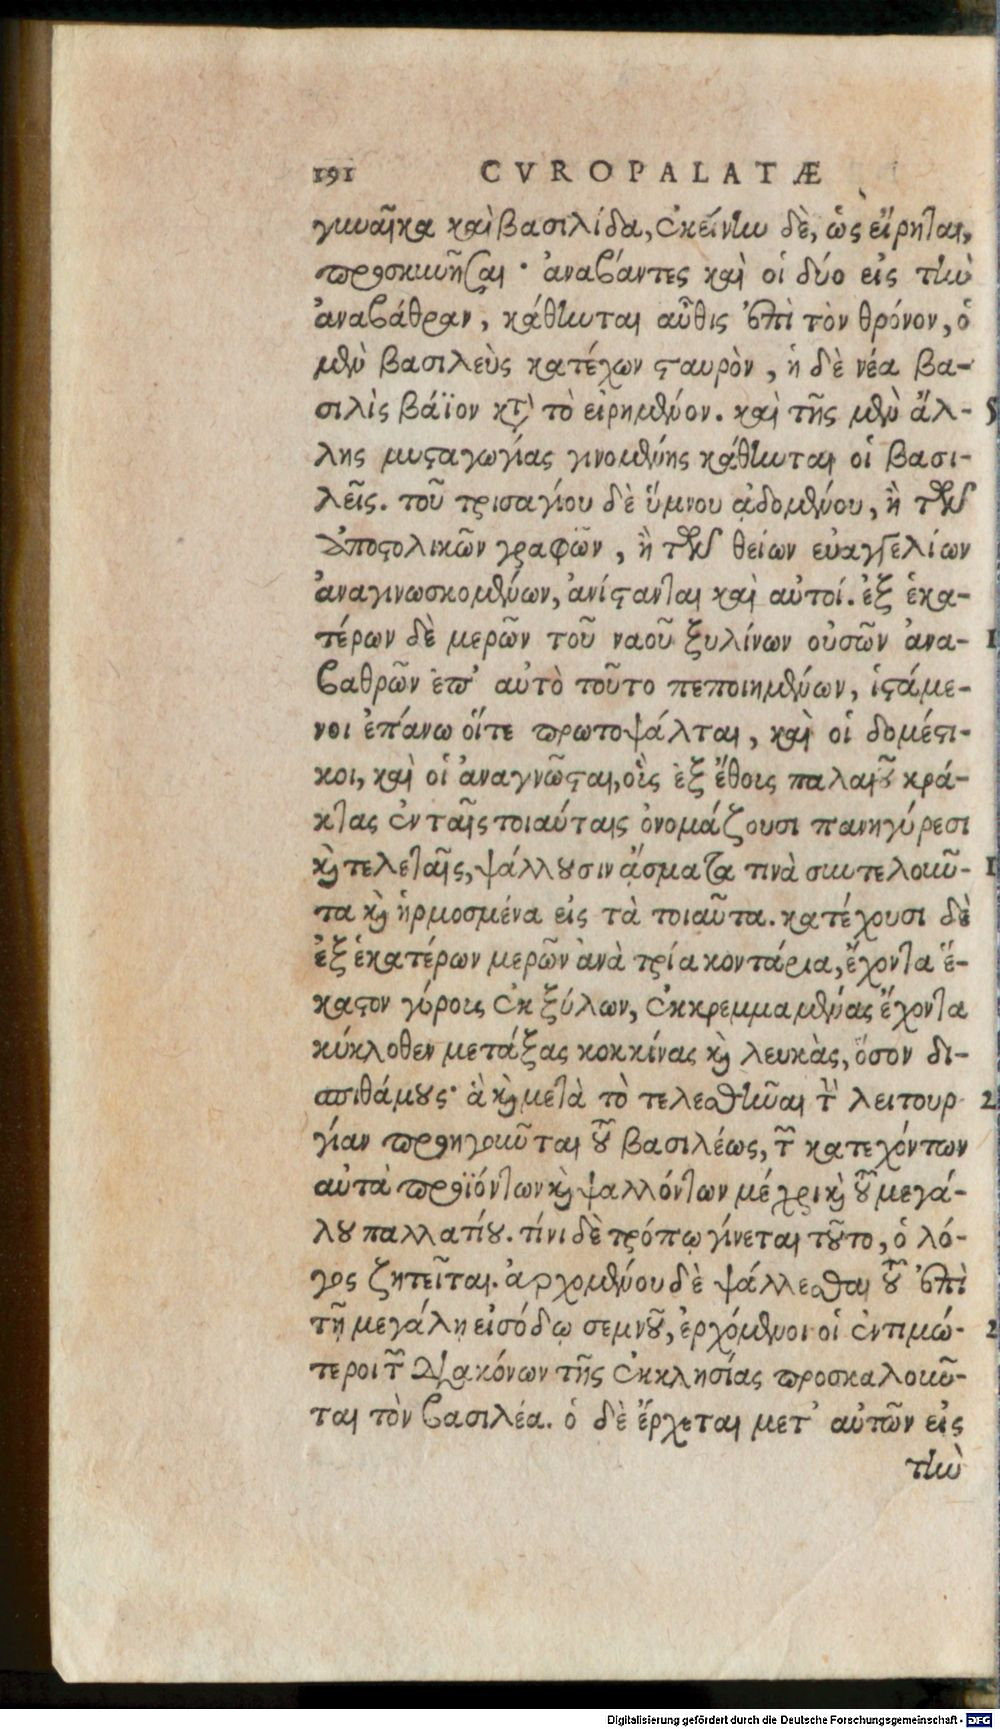 191 CVROPALATÆ
γυναῖκα καὶ βασιλίδα, ἐκείνην δὲ, ὡς εἴρηται,
προσκυνῆσαι· ἀναβάντες καὶ οἱ δύο εἰς τὴν
ἀναβάθραν, κάθηνται αὖθις ἐπὶ τὸν θρόνον, ὁ
μὲν βασιλεὺς κατέχων σταυρὸν, ἡ δὲ νέα βα-
σιλὶς βάϊον κτ τὸ εἰρημένον. καὶ τῆς μὲν ἄλ- 5
λης μυσταγωγίας γινομένης κάθηνται οἱ βασι-
λεῖς. τοῦ τρισαγίου δὲ ὕμνου ᾀδομένου, ἢ τῶν
ἀποστολικῶν γραφῶν, ἢ τῶν θείων εὐαγγελίων
ἀναγινωσκομένων, ἀνίστανται καὶ αὐτοί. ἐξ ἑκα-
τέρων δὲ μερῶν τοῦ ναοῦ ξυλίνων οὐσῶν ἀνα- 1
βαθρῶν ἐπ' αὐτὸ τοῦτο πεποιημένων, ἱστάμε-
νοι ἐπάνω οἵτε πρωτοψάλται, καὶ οἱ δομέστι-
κοι, καὶ οἱ ἀναγνῶσται, οἳς ἐξ ἔθους παλαιοῦ κρά-
κτας ἐν ταῖς τοιαύταις ὀνομάζουσι πανηγύρεσι
καὶ τελεταῖς, ψάλλουσιν ᾄσματα τινὰ συντελοῦν- 1
τα καὶ ἡρμοσμένα εἰς τὰ τοιαῦτα. κατέχουσι δὲ
ἐξ ἑκατέρων μερῶν ἀνὰ τρία κοντάρια, ἔχοντα ἕ-
καστον γύρους ἐκ ξύλων, ἐκκρεμμαμένας ἔχοντα
κύκλοθεν μετάξας κοκκίνας καὶ λευκὰς, ὅσον δι-
σπιθάμους· ἃ καὶ μετὰ τὸ τελεσθῆναι τὴν λειτουρ- 2
γίαν προηγοῦνται τοῦ βασιλέως, τῶν κατεχόντων
αὐτὰ προϊόντων καὶ ψαλλόντων μέχρι καὶ τοῦ μεγά-
λου παλλατίου. τίνι δὲ τρόπῳ γίνεται τοῦτο, ὁ λό-
γος ζητεῖται. ἀρχομένου δὲ ψάλλεσθαι τοῦ ἐπὶ
τῇ μεγάλῃ εἰσόδῳ σεμνοῦ, ἐρχόμενοι οἱ ἐντιμώ- 2
τεροι τῶν διακόνων τῆς ἐκκλησίας προσκαλοῦν-
ται τὸν βασιλέα. ὁ δὲ ἔρχεται μετ' αὐτῶν εἰς
τὴν
Digitalisierung gefördert durch die Deutsche Forschungsgemeinschaft - DFG